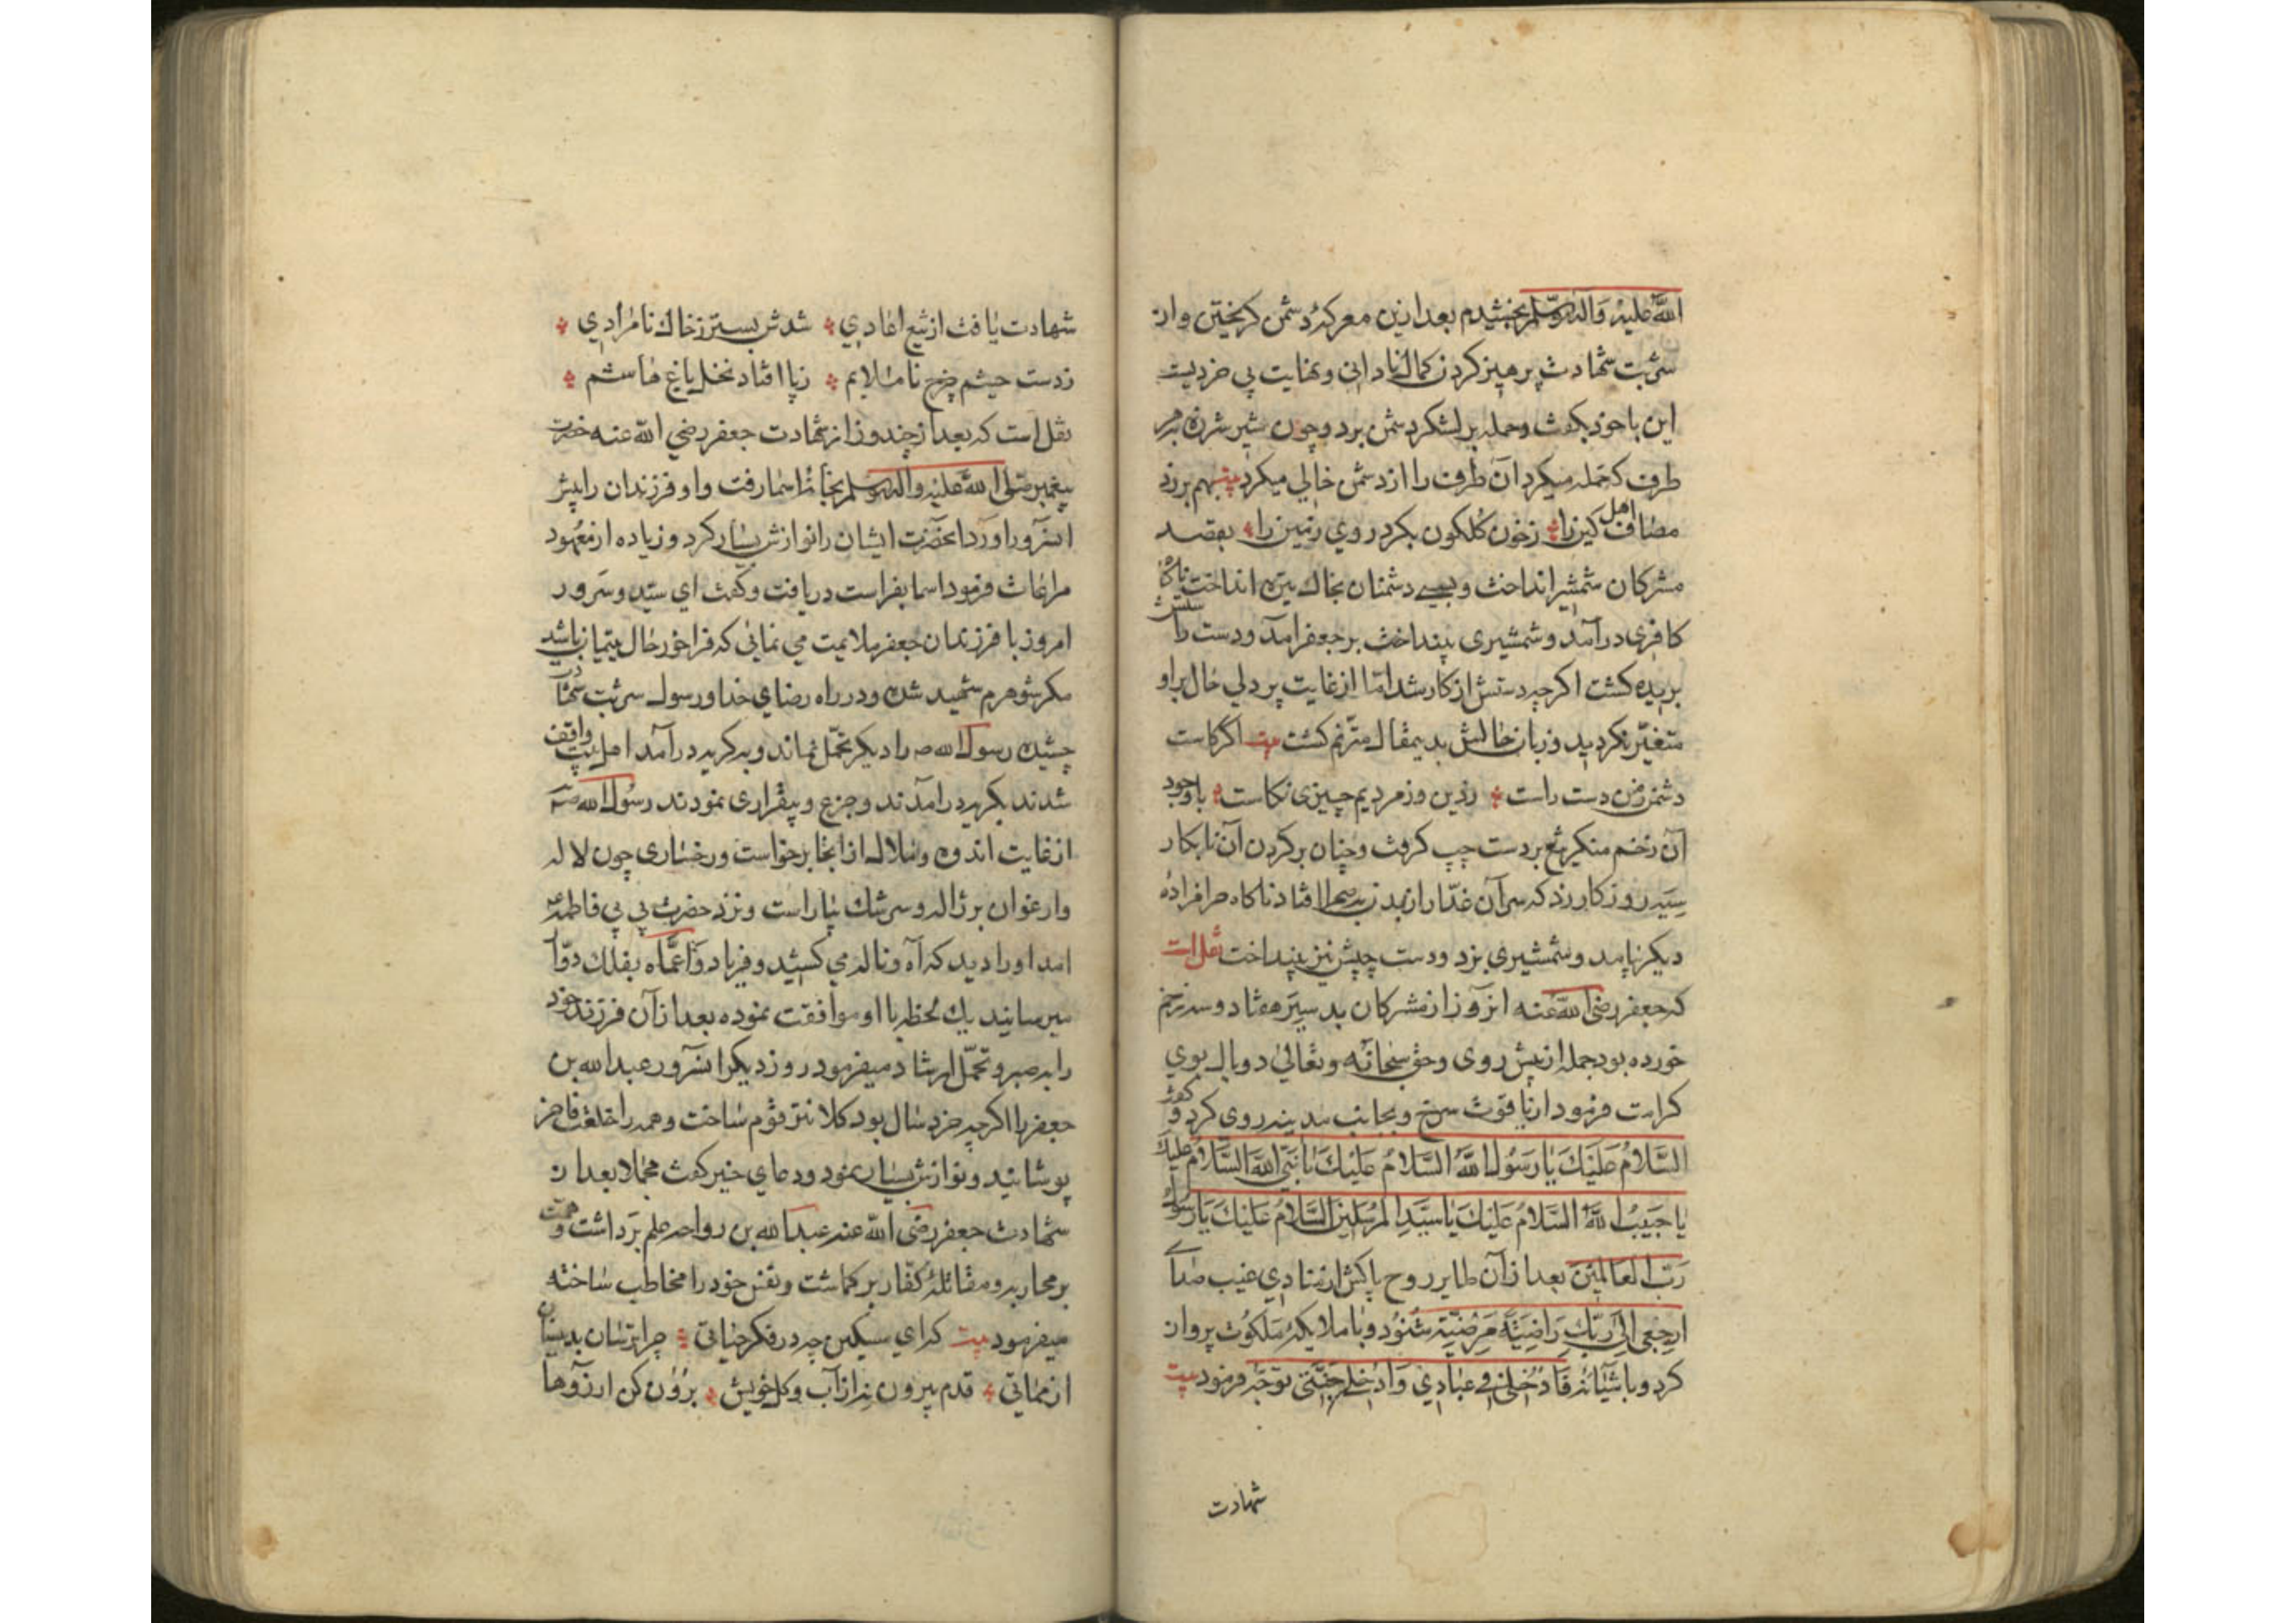 الله علیه وآله وسلم بخشیدم بعد ازین معرکهٔ دشمن کریختن واز
شربت شهادت پرهیز کردن کمال نادانی ونهایت بی خردیست
این با خود بکفت وحمله بر لشکر دشمن برد وچون شیر شرزه بهر
طرف که حمله میکرد آن طرف را از دشمن خالی میکرد بیت بهم برزد
مصاف اهل کین را زخون کلکون بکرد روی زمین را بقصد
مشرکان شمشیر انداخت وبسی دشمنان بخاک تیره انداخت ناکاه
کافری درآمد وشمشیری بینداخت بر جعفر آمد ودست راستش
بریده کشت اکرچه دستش از کار شد اما از غایت پر دلی حال بر او
متغیر نکردید وزبان حالش بدینمقال مترنم کشت بیت اکر کاست
دشمن زمن دست راست زدین وز مردیم چیزی نکاست باوجود
آن زخم منکر تیغ بر دست چپ کرفت وچنان بر کردن آن نابکار
سیه روزکار زد که سر آن غدار از بدن بصحرا افتاد ناکاه حرامزادهٔ
دیکر بیامد وشمشیری بزد ودست چپش نیز بینداخت نقل است
که جعفر رضی الله عنه آنروز از مشرکان بد سیر هفتاد وسه زخم
خورده بود جمله از پیش روی وحق سبحانه وتعالی دو بال بوی
کرامت فرمود از یاقوت سرخ وبجانب مدینه روی کرد و کفت
السلام علیک یا رسول الله السلام علیک یا نبی الله السلام علیک
یا حبیب الله السلام علیک یا سید المرسلین السلام علیک یا رسول
رب العالمین بعد از آن طایر روح پاکش از منادی غیب صدای
ارجعی الی ربک راضیة مرضیة شنود وبا ملایکهٔ ملکوت پرواز
کرد وباشیانهٔ فادخلی فی عبادی وادخلی جنتی توجه فرمود بیت
شهادت
شهادت یافت از تیغ اعادی شدش بستر زخاک نامرادی
زدست چشم زخم ناملایم زپا افتاد نخل باغ هاشم
نقل است که بعد از چند روز از شهادت جعفر رضی الله عنه حضرت
پیغمبر صلی الله علیه وآله وسلم بخانهٔ اسما رفت واو فرزندان را پیش
آنسرور آورد آنحضرت ایشان را نوازش بسیار کرد وزیاده از معهود
مراعات فرمود اسما بفراست دریافت وکفت ای سید وسرور
امروز با فرزندان جعفر ملایمت می نمائی که فراخور حال یتیمان باشد
مکر شوهرم شهید شده ودر راه رضای خدا ورسول شربت شهادت
چشیده رسول الله ص را دیکر تحمل نماند وبه کریه درآمد اهل بیت واقف
شدند بکریه درآمدند وجزع وبیقراری نمودند رسول الله ص
از غایت اندوه وملال از آنجا برخواست ورخساری چون لاله
وارغوان بر ژاله وسرشک بیاراست ونزد حضرت بی بی فاطمه ع
آمد او را دید که آه وناله می کشید وفریاد واعماه بفلک دوار
میرسانید یک لحظه با او موافقت نموده بعد از آن فرزند خود
را به صبر وتحمل ارشاد میفرمود روز دیکر آنسرور عبدالله بن
جعفر را اکرچه خرد سال بود کلانتر قوم ساخت وهمه را خلعت فاخر
پوشانید ونوازش بسیار نمود ودعای خیر کفت مجملا بعد از
شهادت جعفر رضی الله عنه عبدالله بن رواحه علم برداشت و همت
بر محاربه ومقاتلهٔ کفار برکماشت ونفس خود را مخاطب ساخته
میفرمود بیت که ای مسکین چه در فکر حیاتی چرا ترسان بدینسان
از مماتی قدم بیرون نه از آب وکل خویش برون کن آرزوها